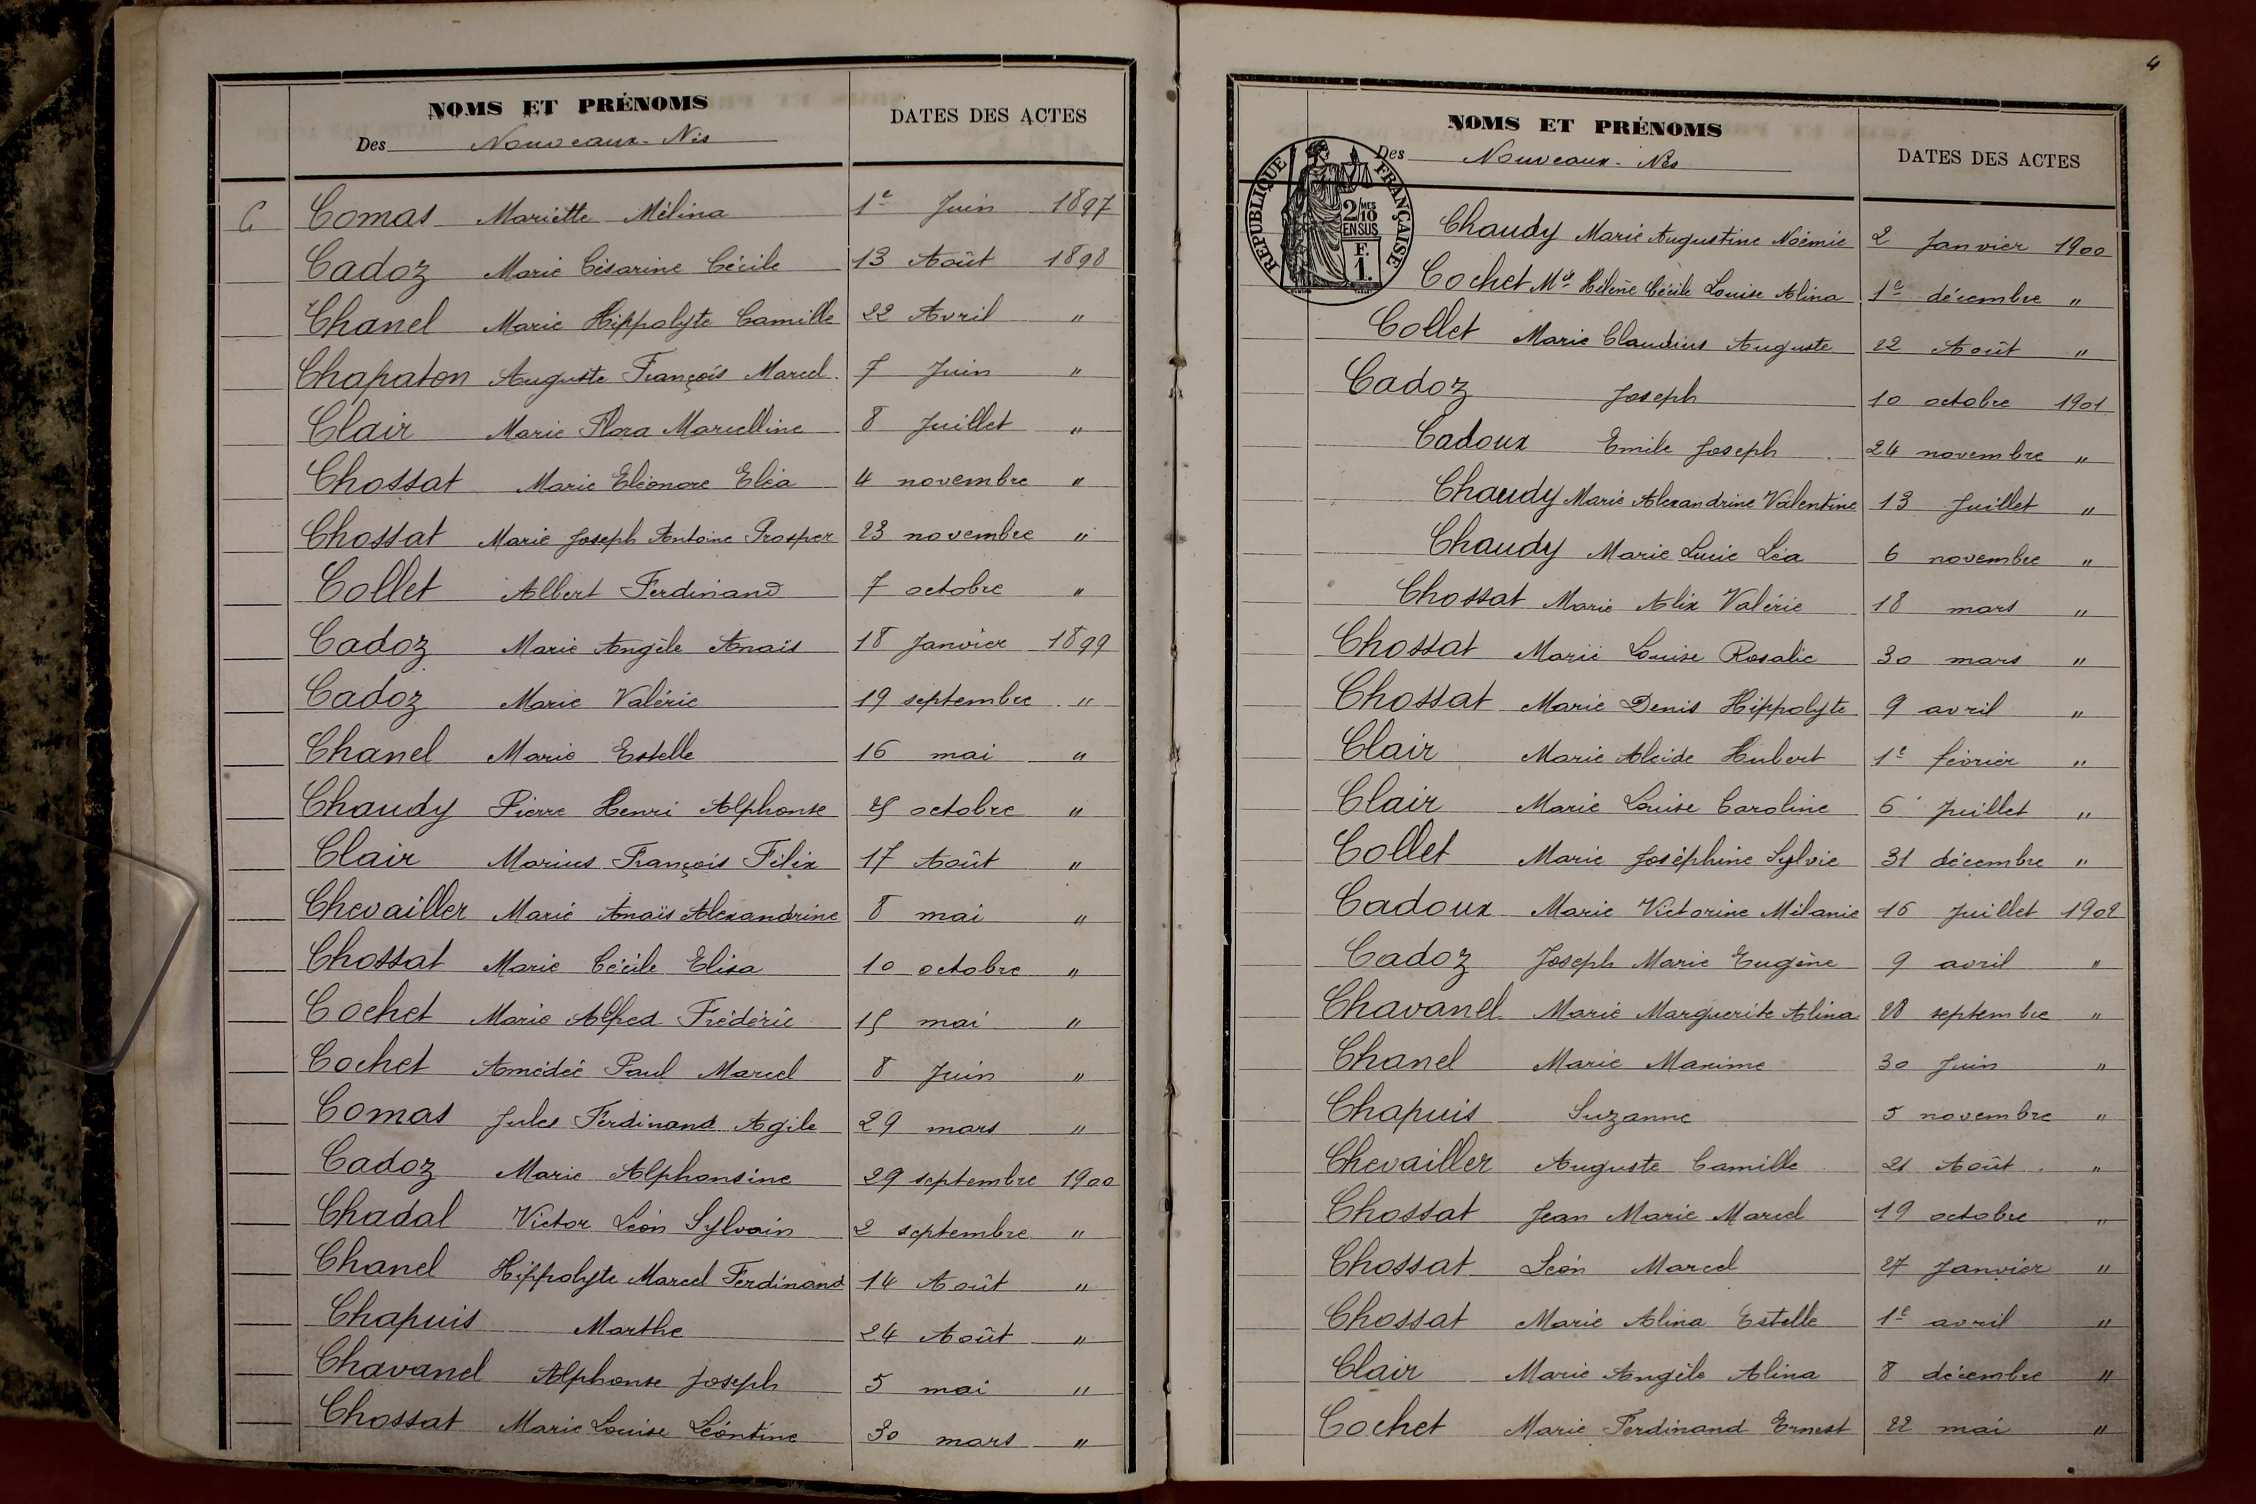 NOMS ET PRÉNOMS
Des Nouveaux-Nés
DATES DES ACTES
C Comas Mariette Mélina 1er Juin 1897
Cadoz Marie Césarine Cécile 13 Août 1898
Chanel Marie Hippolyte Camille 22 Avril "
Chapaton Auguste François Marcel 7 Juin "
Clair Marie Flora Marcelline 8 Juillet "
Chossat Marie Eléonore Eléa 4 novembre "
Chossat Marie Joseph Antoine Prosper 23 novembre "
Collet Albert Ferdinand 7 octobre "
Cadoz Marie Angèle Anaïs 18 Janvier 1899
Cadoz Marie Valérie 19 septembre "
Chanel Marie Estelle 16 mai "
Chaudy Pierre Henri Alphonse octobre "
Clair Marius François Félix 17 Août "
Chevailler Marie Anaïs Alexandrine 8 mai "
Chossat Marie Cécile Elisa 10 octobre "
Cochet Marie Alfred Frédéric 15 mai "
Cochet Amédéé Paul Marcel 8 Juin "
Comas Jules Ferdinand Agile 29 mars "
Cadoz Marie Alphonsine 29 septembre 1900
Chadal Victor Léon Sylvain 2 septembre "
Chanel Hippolyte Marcel Ferdinand 14 Août "
Chapuis Marthe 24 Août "
Chavanel Alphonse Joseph 5 mai "
Chossat Marie Louise Léontine 30 mars "
4
NOMS ET PRÉNOMS
Des Nouveaux-Nés
DATES DES ACTES
RÉPUBLIQUE FRANÇAISE
2/10 MES
EN SUS
F.
1.
Chaudy Marie Augustine Noémie 2 Janvier 1900
Cochet Mie Hélène Cécile Louise Alina 1er décembre "
Collet Marie Claudius Auguste 22 Août "
Cadoz Joseph 10 octobre 1901
Cadoux Emile Joseph 24 novembre "
Chaudy Marie Alexandrine Valentine 13 Juillet "
Chaudy Marie Lucie Léa 6 novembre "
Chossat Marie Alix Valérie 18 mars "
Chossat Marie Louise Rosalie 30 mars "
Chossat Marie Denis Hippolyte 9 avril "
Clair Marie Alcide Hubert 1er février "
Clair Marie Louise Caroline 6 Juillet "
Collet Marie Joséphine Sylvie 31 décembre "
Cadoux Marie Victorine Mélanie 16 Juillet 1902
Cadoz Joseph Marie Eugène 9 avril "
Chavanel Marie Marguerite Alina 28 septembre "
Chanel Marie Maxime 30 Juin "
Chapuis Suzanne 5 novembre "
Chevailler Auguste Camille 21 Août "
Chossat Jean Marie Marcel 19 octobre "
Chossat Léon Marcel 27 Janvier "
Chossat Marie Alina Estelle 1er avril "
Clair Marie Angèle Alina 8 décembre "
Cochet Marie Ferdinand Ernest 22 mai "